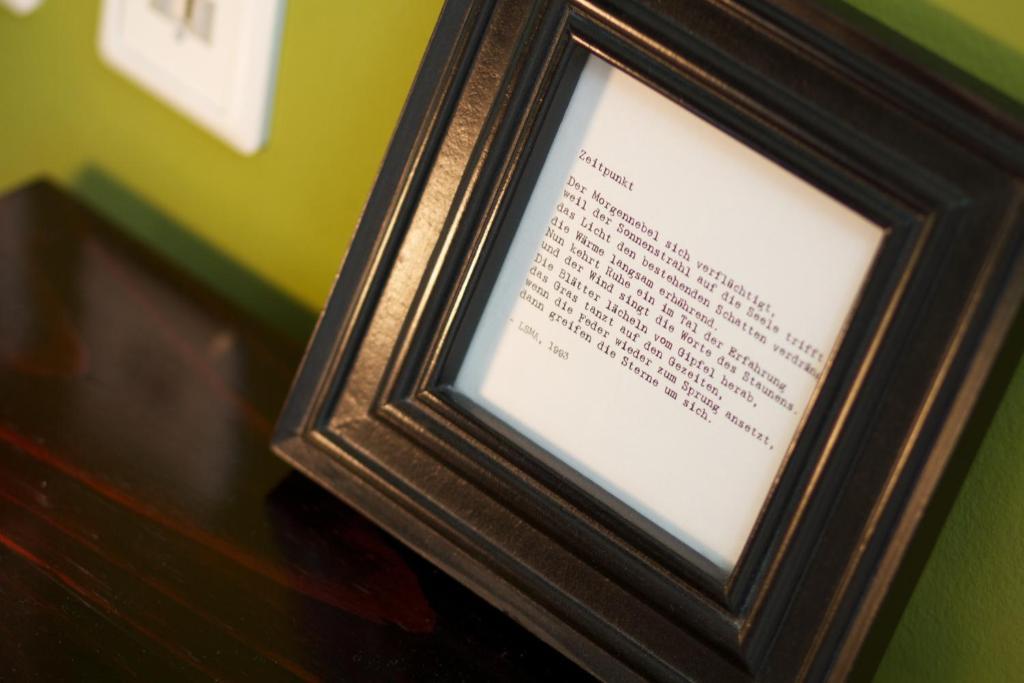 Zeitpunkt
Der Morgennebel sich verflächtigt,
weil der Sonnenstrahl auf die Seele trifft
das Licht den bestehenden Schatten verdrän
die Wärme langsam erhährend.
Nun kehrt Ruhe ein im Tal der Erfahrung
und der Wind singt die Worte des Staunens.
Die Blätter lächeln vom Gipfel herab,
das Gras tanzt auf den Gezeiten,
wenn die Feder wieder zum Sprung ansetzt,
dann greifen die Sterne um sich.
- LSMA, 1993